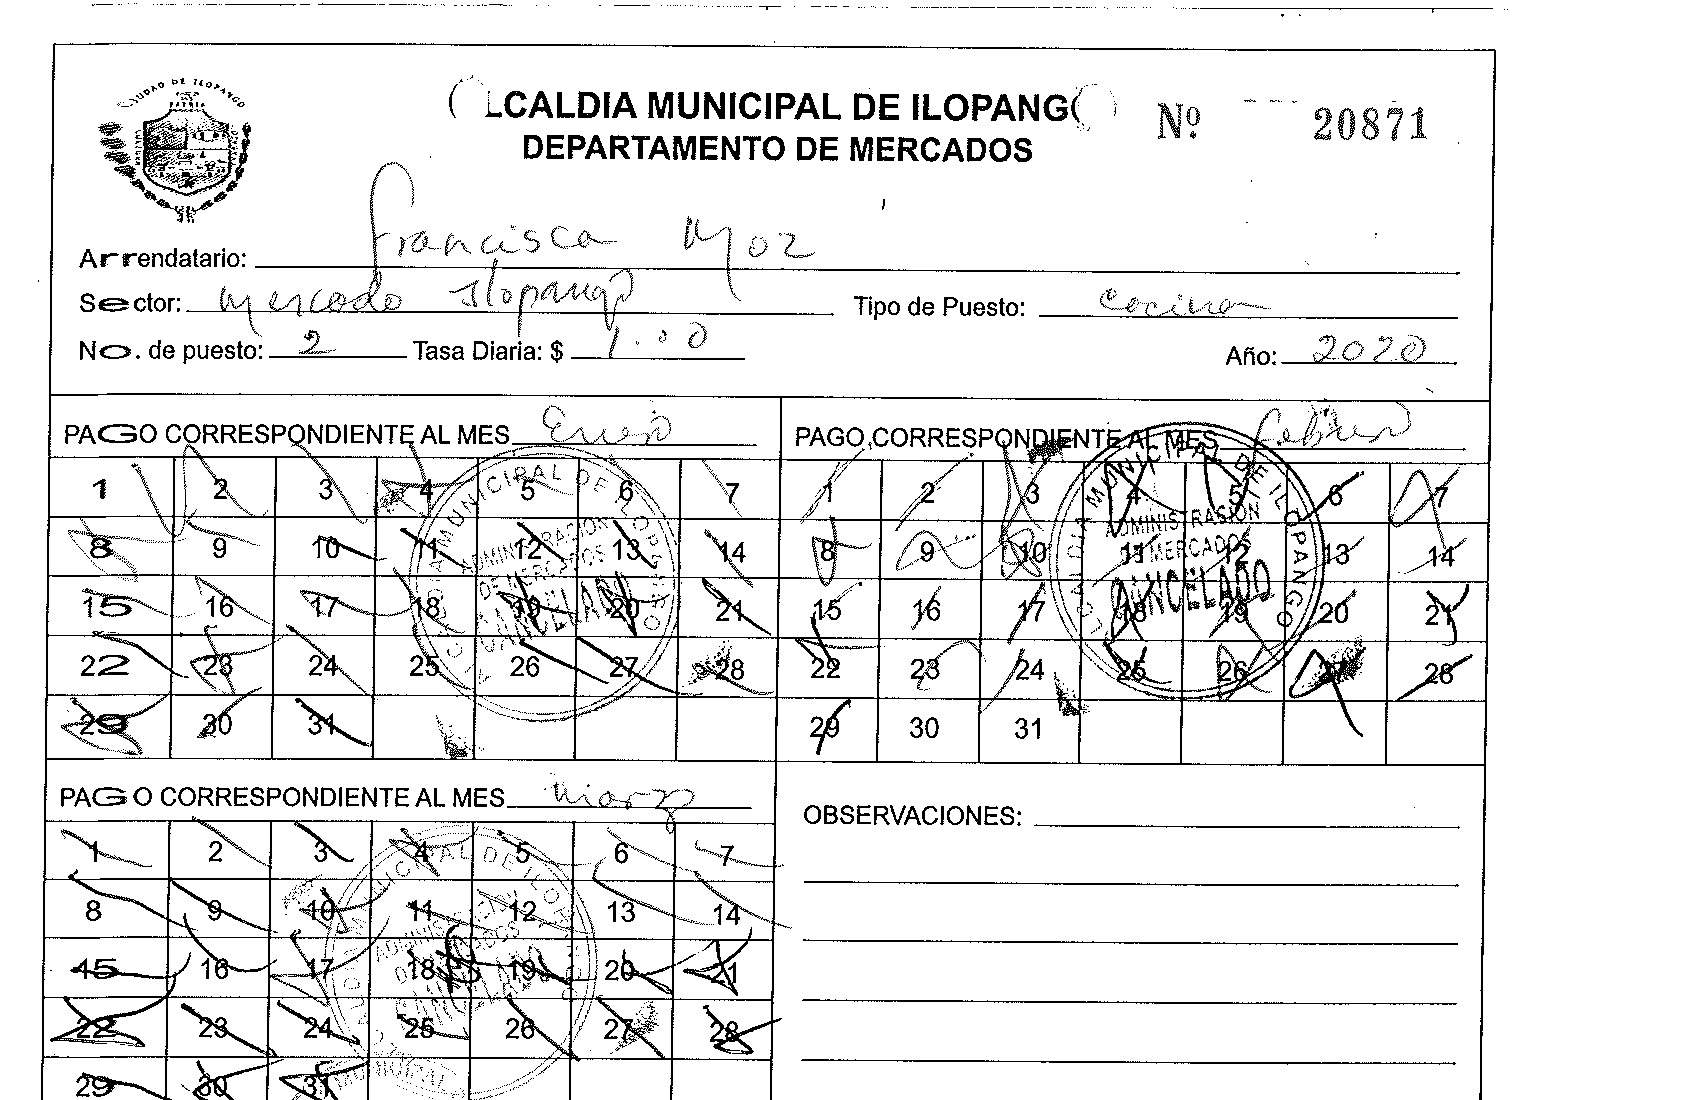 CIUDAD DE ILOPANGO
ALCALDIA MUNICIPAL DE ILOPANGO
DEPARTAMENTO DE MERCADOS
Nº 20871
Arrendatario: Francisca Moz
Sector: Mercado Ilopango Tipo de Puesto: cocina
No. de puesto: 2 Tasa Diaria: $ 1.00 Año: 2020
PAGO CORRESPONDIENTE AL MES Enero
1 2 3 4 5 6 7
8 9 10 11 12 13 14
15 16 17 18 19 20 21
22 23 24 25 26 27 28
29 30 31
MUNICIPAL DE ILOPANGO
ADMINISTRASION
DE MERCADOS
CANCELADO
PAGO CORRESPONDIENTE AL MES Febrero
1 2 3 4 5 6 7
8 9 10 11 12 13 14
15 16 17 18 19 20 21
22 23 24 25 26 27 28
29 30 31
ALCALDIA MUNICIPAL DE ILOPANGO
ADMINISTRASION
DE MERCADOS
CANCELADO
PAGO CORRESPONDIENTE AL MES Marzo
1 2 3 4 5 6 7
8 9 10 11 12 13 14
15 16 17 18 19 20 21
22 23 24 25 26 27 28
29 30 31
OBSERVACIONES: